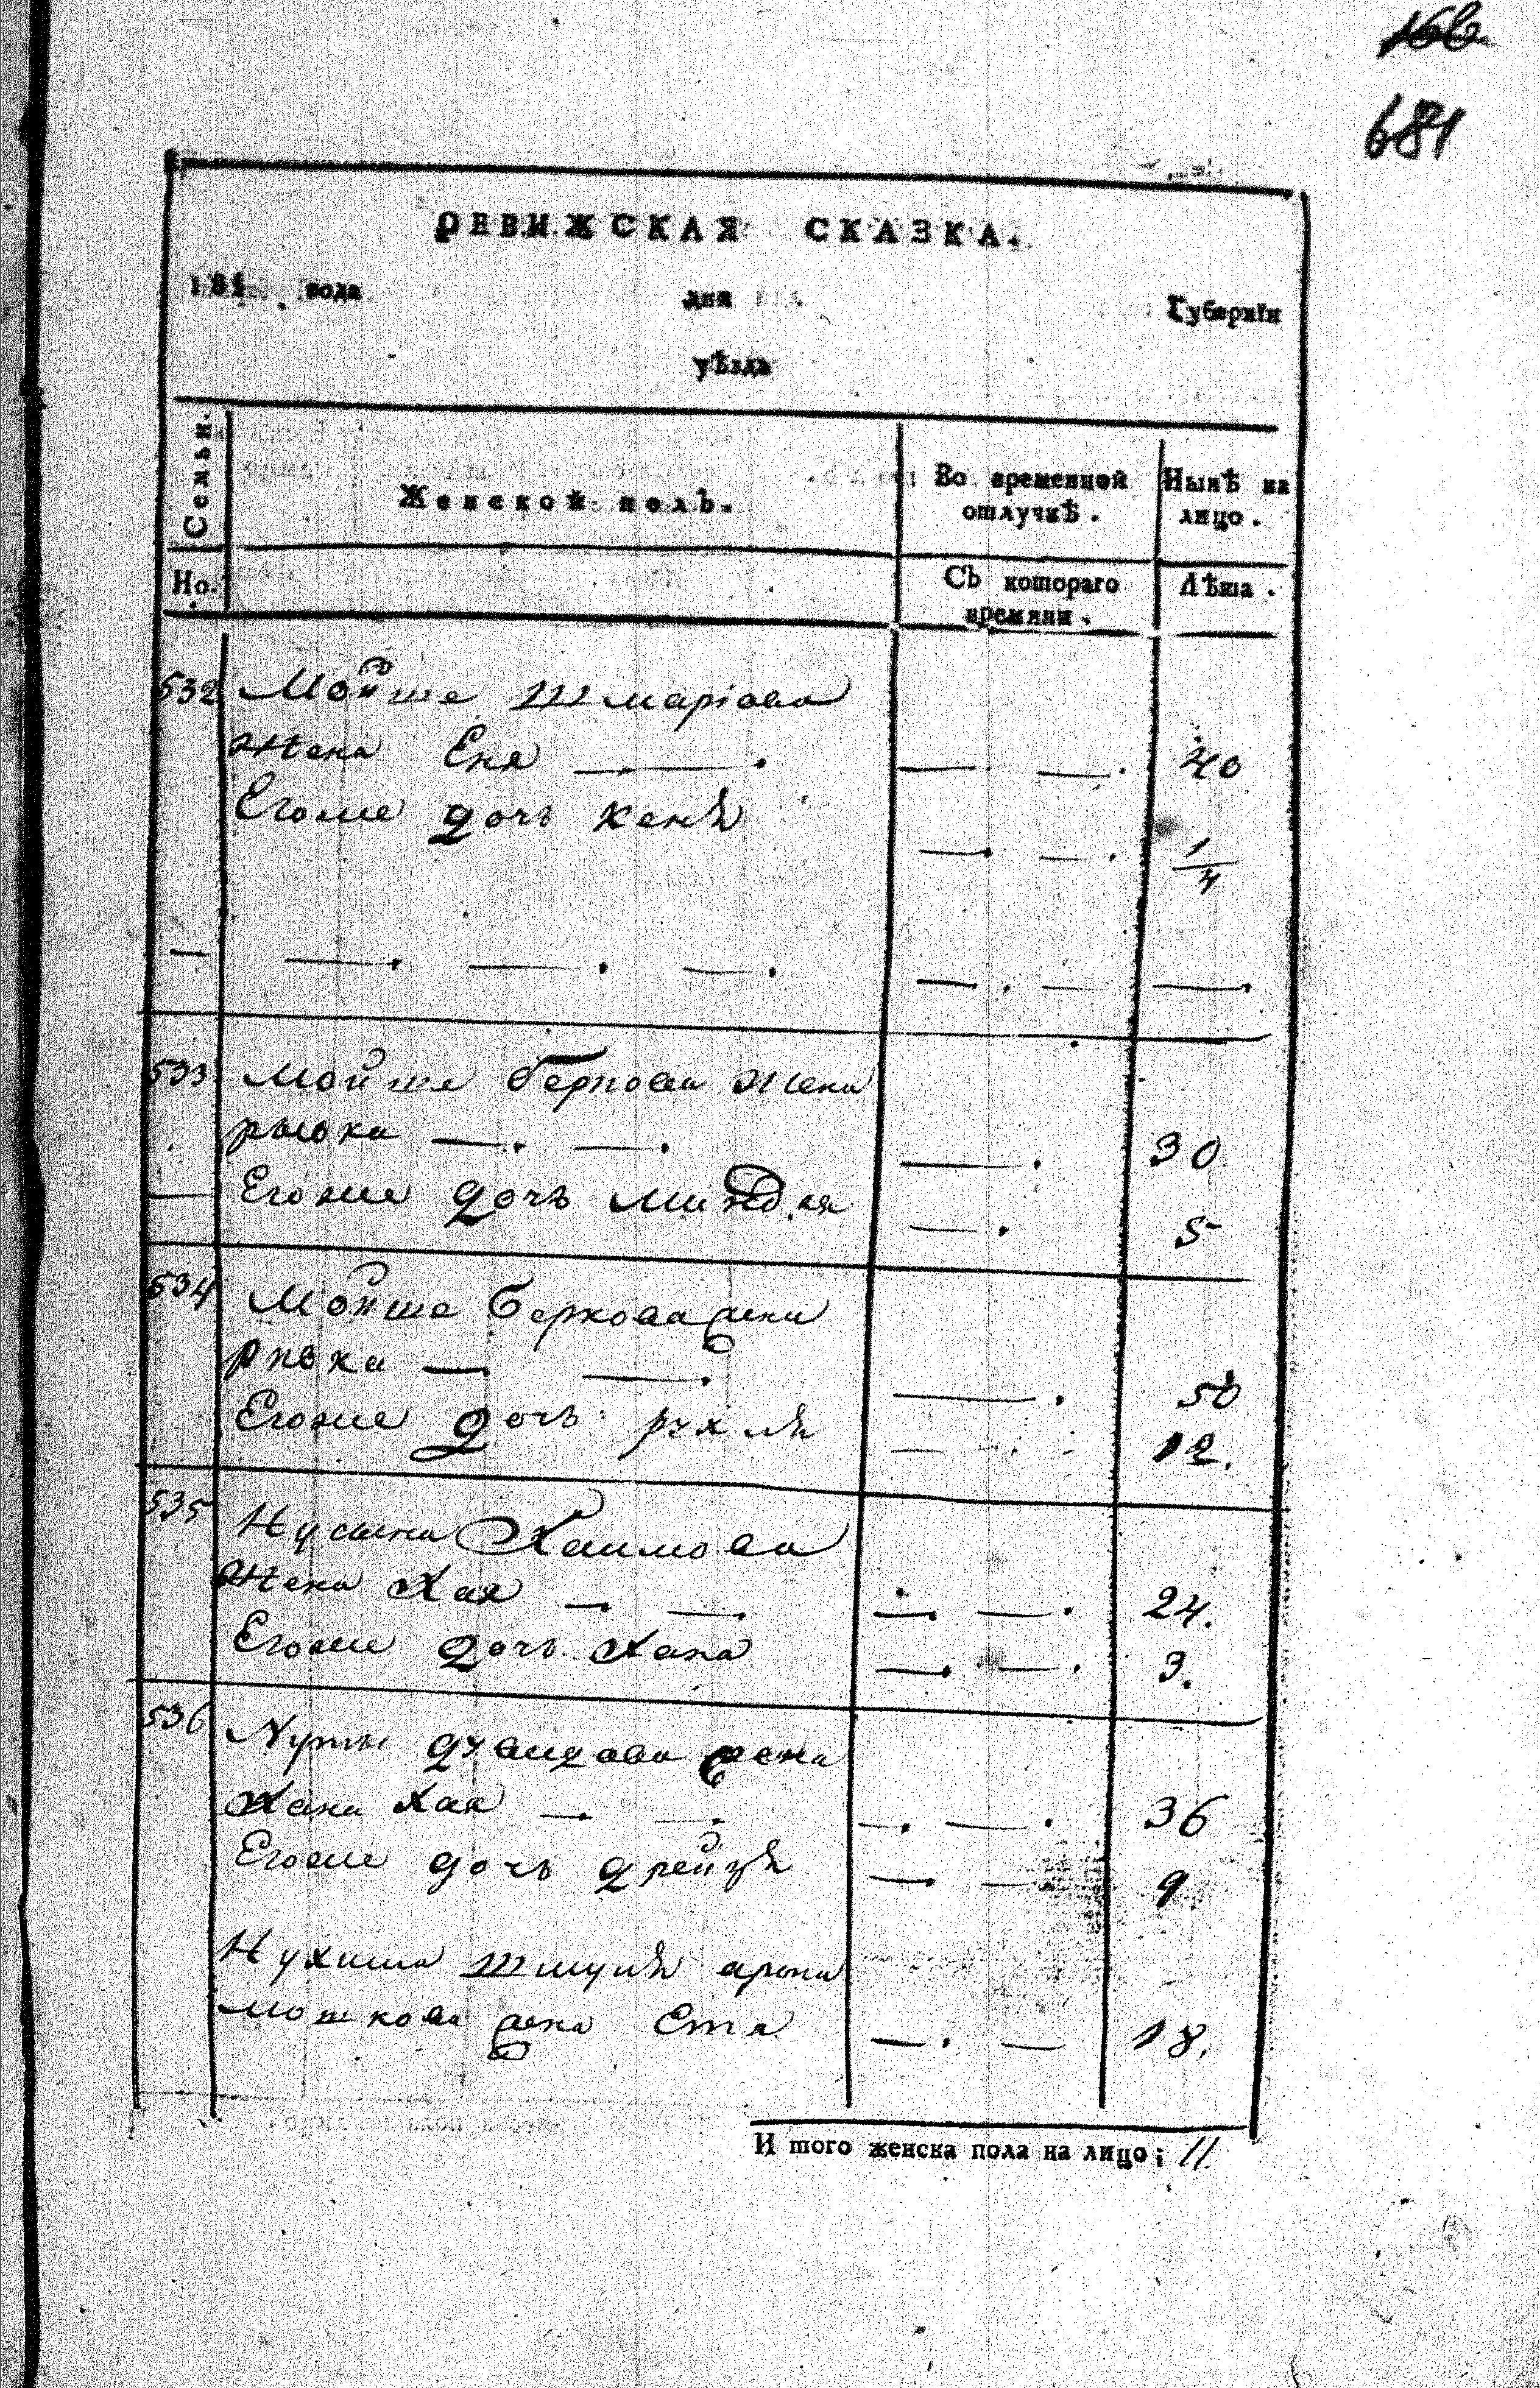 681
РЕВИЖСКАЯ СКАЗКА.
181 года дня Губерніи
уѣзда
Семьи. Женской полъ. Во временной отлучкѣ. Нынѣ на лицо.
Но. Съ котораго времяни. Лѣта.
532 Мойше Шмаріова
жена Еня — — — 40
Егоже дочь Кенѣ — — 1/4
— — — — — — —
533 Мойше Беркова жена
рывка — — — 30
— Егоже дочь Миндля — 5
534 Мойше Беркова жена
Ривка — — — 50
Егоже дочь рухлѣ — — 12.
535 Нусина Хаимова
жена Хая — — — — 24.
Егоже дочь Хана — — 3.
536 дувидова жена
Хана Хая — — — — 36
Егоже дочь дрейзѣ — — 9
Нухима Шмулѣ арона
мошкова жена Етя — — 18.
И того женска пола на лицо; 11.